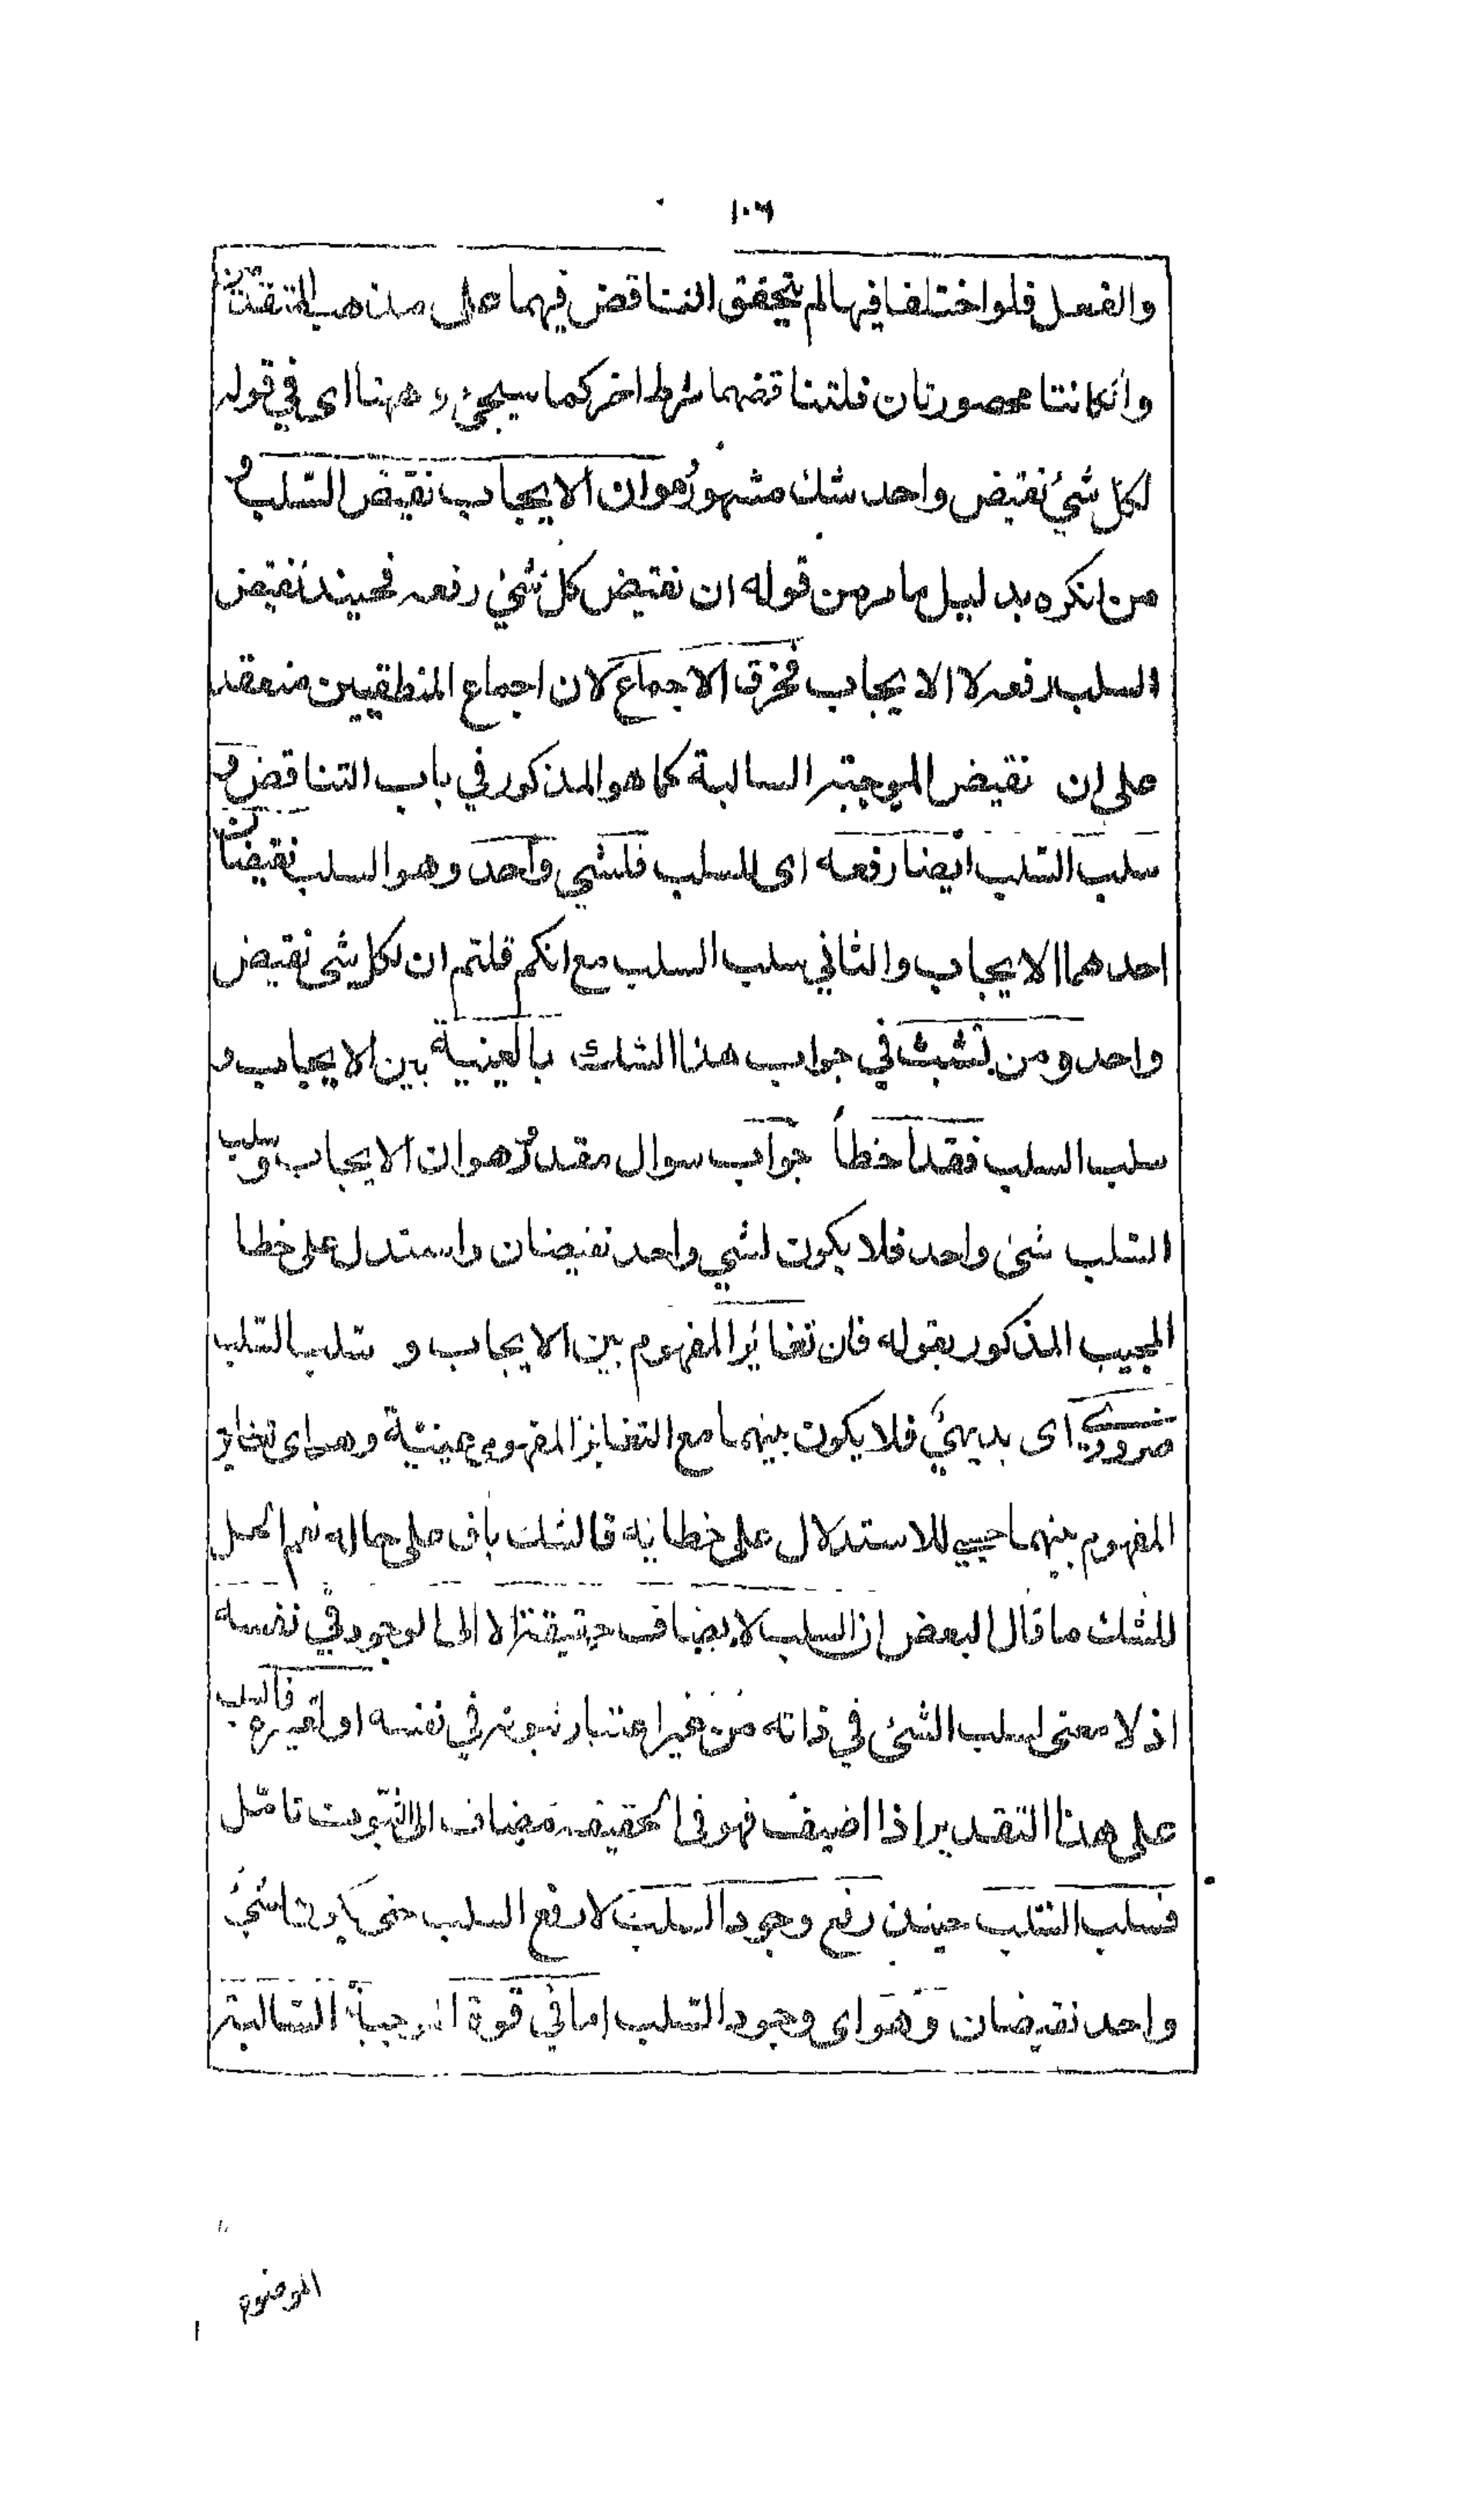 ١٠٦
والفعل فلو اختلفا فيها لم يتحقق التناقض فيهما على مذهب المتقدمين
وانكانتا محصورتان فلتناقضهما شرط اخر كما سيجئ وههنا اى في قوله
لكل شئ نقيض واحد شك مشهور وهو ان الايجاب نقيض السلب و
من انكره بدليل ما مر من قوله ان نقيض كل شئ رفعه فحينئذ نقيض
السلب رفعه لا الايجاب فخرق الاجماع لان اجماع المنطقيين منعقد
على ان نقيض الموجبة السالبة كما هو المذكور في باب التناقض و
سلب السلب ايضا رفعه اى للسلب فلشي واحد وهو السلب نقيضان
احدهما الايجاب والثاني سلب السلب مع انكم قلتم ان لكل شى نقيض
واحد ومن تشبث في جواب هذا الشك بالعينية بين الايجاب و
سلب السلب فقد اخطأ جواب سوال مقدر وهو ان الايجاب وسلب
السلب شئ واحد فلا يكون لشي واحد نقيضان واستدل على خطا
المجيب المذكور بقوله فان تغاير المفهوم بين الايجاب و سلب السلب
ضرورى اى بديهي فلا يكون بينهما مع التغاير المفهومي عينية وهو اى تغاير
المفهوم بينهما حسبي للاستدلال على خطائه فالشك باق على حاله نعم الحل
للشك ما قال البعض ان السلب لا يضاف حقيقة الا الى الوجود في نفسه
اذ لا معنى لسلب الشئ في ذاته من غير اعتبار ثبوته في نفسه او لغيره فالسلب
على هذا التقدير اذا اضيف فهو فى الحقيقة مضاف الى الثبوت تامّل
فسلب السلب حينئذ رفع وجود السلب لا رفع السلب حتى يكون لشئ
واحد نقيضان وهو اى وجود السلب اما في قوة الموجبة السالبة
الموضوع